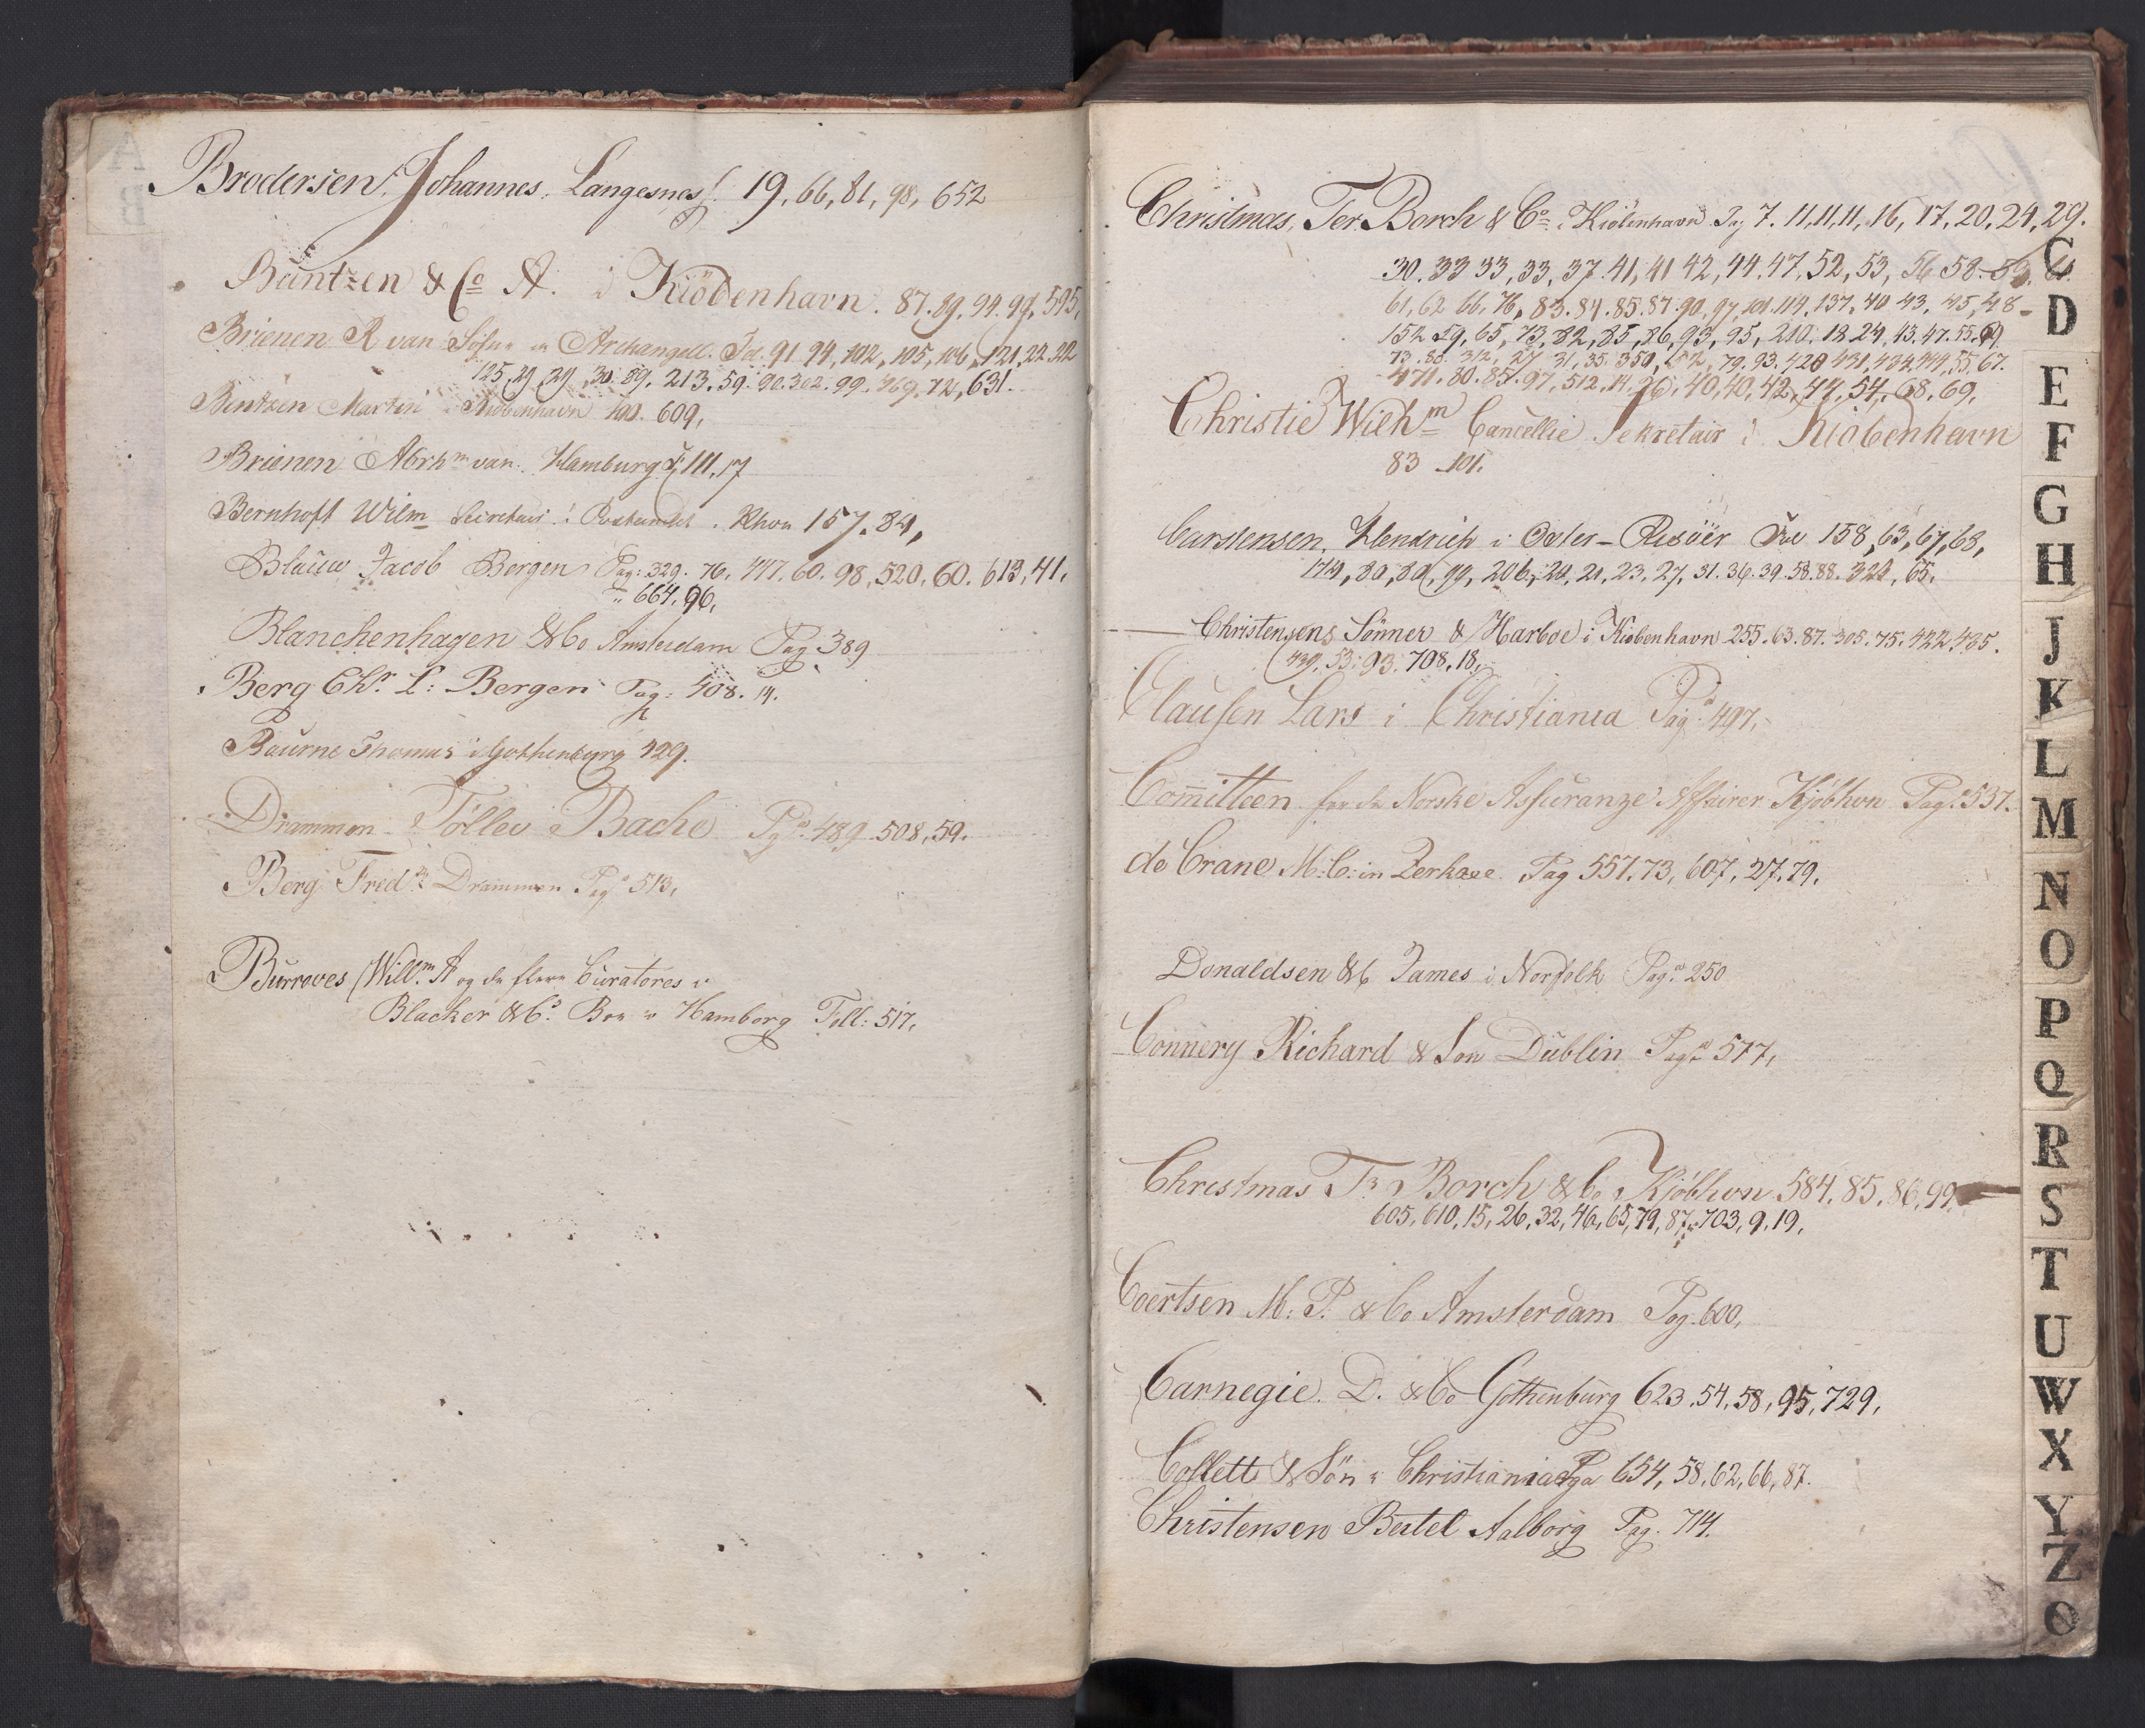 Brodersen, Johannes. Langesnes 19, 66, 81, 98, 652
Büntzen & Co A. i Kiöbenhavn. 87. 89. 94. 99, 595,
Brienen R van in Archangell. Fol. 91. 94, 102, 105, 106, 121, 22
125, 29, 29, 30. 89. 213. 59. 90. 302. 99. 469. 72, 631.
Bentzen Martin i Kiöbenhavn 609,
Brienen Abrhm van. Hamburg 111, 17
Bernhoft Wilm Secretair i Khvn 157. 84,
Blauw Jacob Bergen Pag: 329. 76. 447. 60. 98, 520, 60. 613, 41.
" 664. 96,
Blanchenhagen & Co Amsterdam Pag 389
Berg Chr. L: Bergen Pag: 408. 14.
Bourne Thomas i Gothenburg 429.
Drammen Töllev Bache Pag 489 508, 59.
Berg Fredk Drammen Pag 513,
Burroves Willm A og de flere Curatores i
Blacker & Co. Boe i Hamborg Foll: 517,
Christmas, Ter Borch & Co i Kiöbenhavn Pag 7. 11, 11, 11, 16, 17, 20, 24, 29.
30. 33 33, 33, 37. 41, 41 42, 44. 47. 52, 53, 56 58.
61, 62 66. 76, 83. 84. 85. 87. 90. 97, 101. 114, 137, 40 43. 45, 48
152 59, 65, 73, 82, 85, 86, 93, 95, 210. 18 24, 43. 47. 55.
73. 80. 312, 27 31, 35. 350, 79. 93. 420 431, 434. 55. 67.
471. 80. 85. 97, 512. 14. 26, 40, 40, 42, 47, 54, 68, 69,
Christie Wilhm Cancellie Sekretair i Kiöbenhavn
83 101.
Carstensen, Hendrich i Oster-Riisöer Fol 158, 63, 67, 68,
174, 80, 80, 99, 206, 20, 21, 23, 27, 31. 36. 39. 58. 88. 65.
Christensens Sönner & Harboe i Kiöbenhavn 255. 63. 87. 305. 75. 422, 435.
439, 53. 93. 708. 18,
Clausen Lars i Christiania Pag. 497,
Committeen for de Norske Assuranze Affairer Kjöbhvn Pag. 537.
de Crane M: C: in Zerkzee. Pag 557. 73, 607, 27. 79.
Donaldsen & Co James i Norfolk Pag. 250
Connery Richard & Son Dublin Pag 577,
Christmas Tr Borch & Co Kjöbhvn 584. 85. 86. 99.
605, 610, 15, 26, 32, 46, 65, 79, 87, 703, 9, 19,
Coertsen M: P. & Co Amsterdam Pag. 600,
Carnegie. D. & Co Gothenburg 623. 54, 58, 95, 729.
Collett & Sön i Christiania Pga 654, 58. 62, 66, 87.
Christensen Bertel Aalborg Pag. 714.
C
D
E
F
G
H
J
K
L
M
N
O
P
Q
R
S
T
U
W
X
Y
Z
Ø